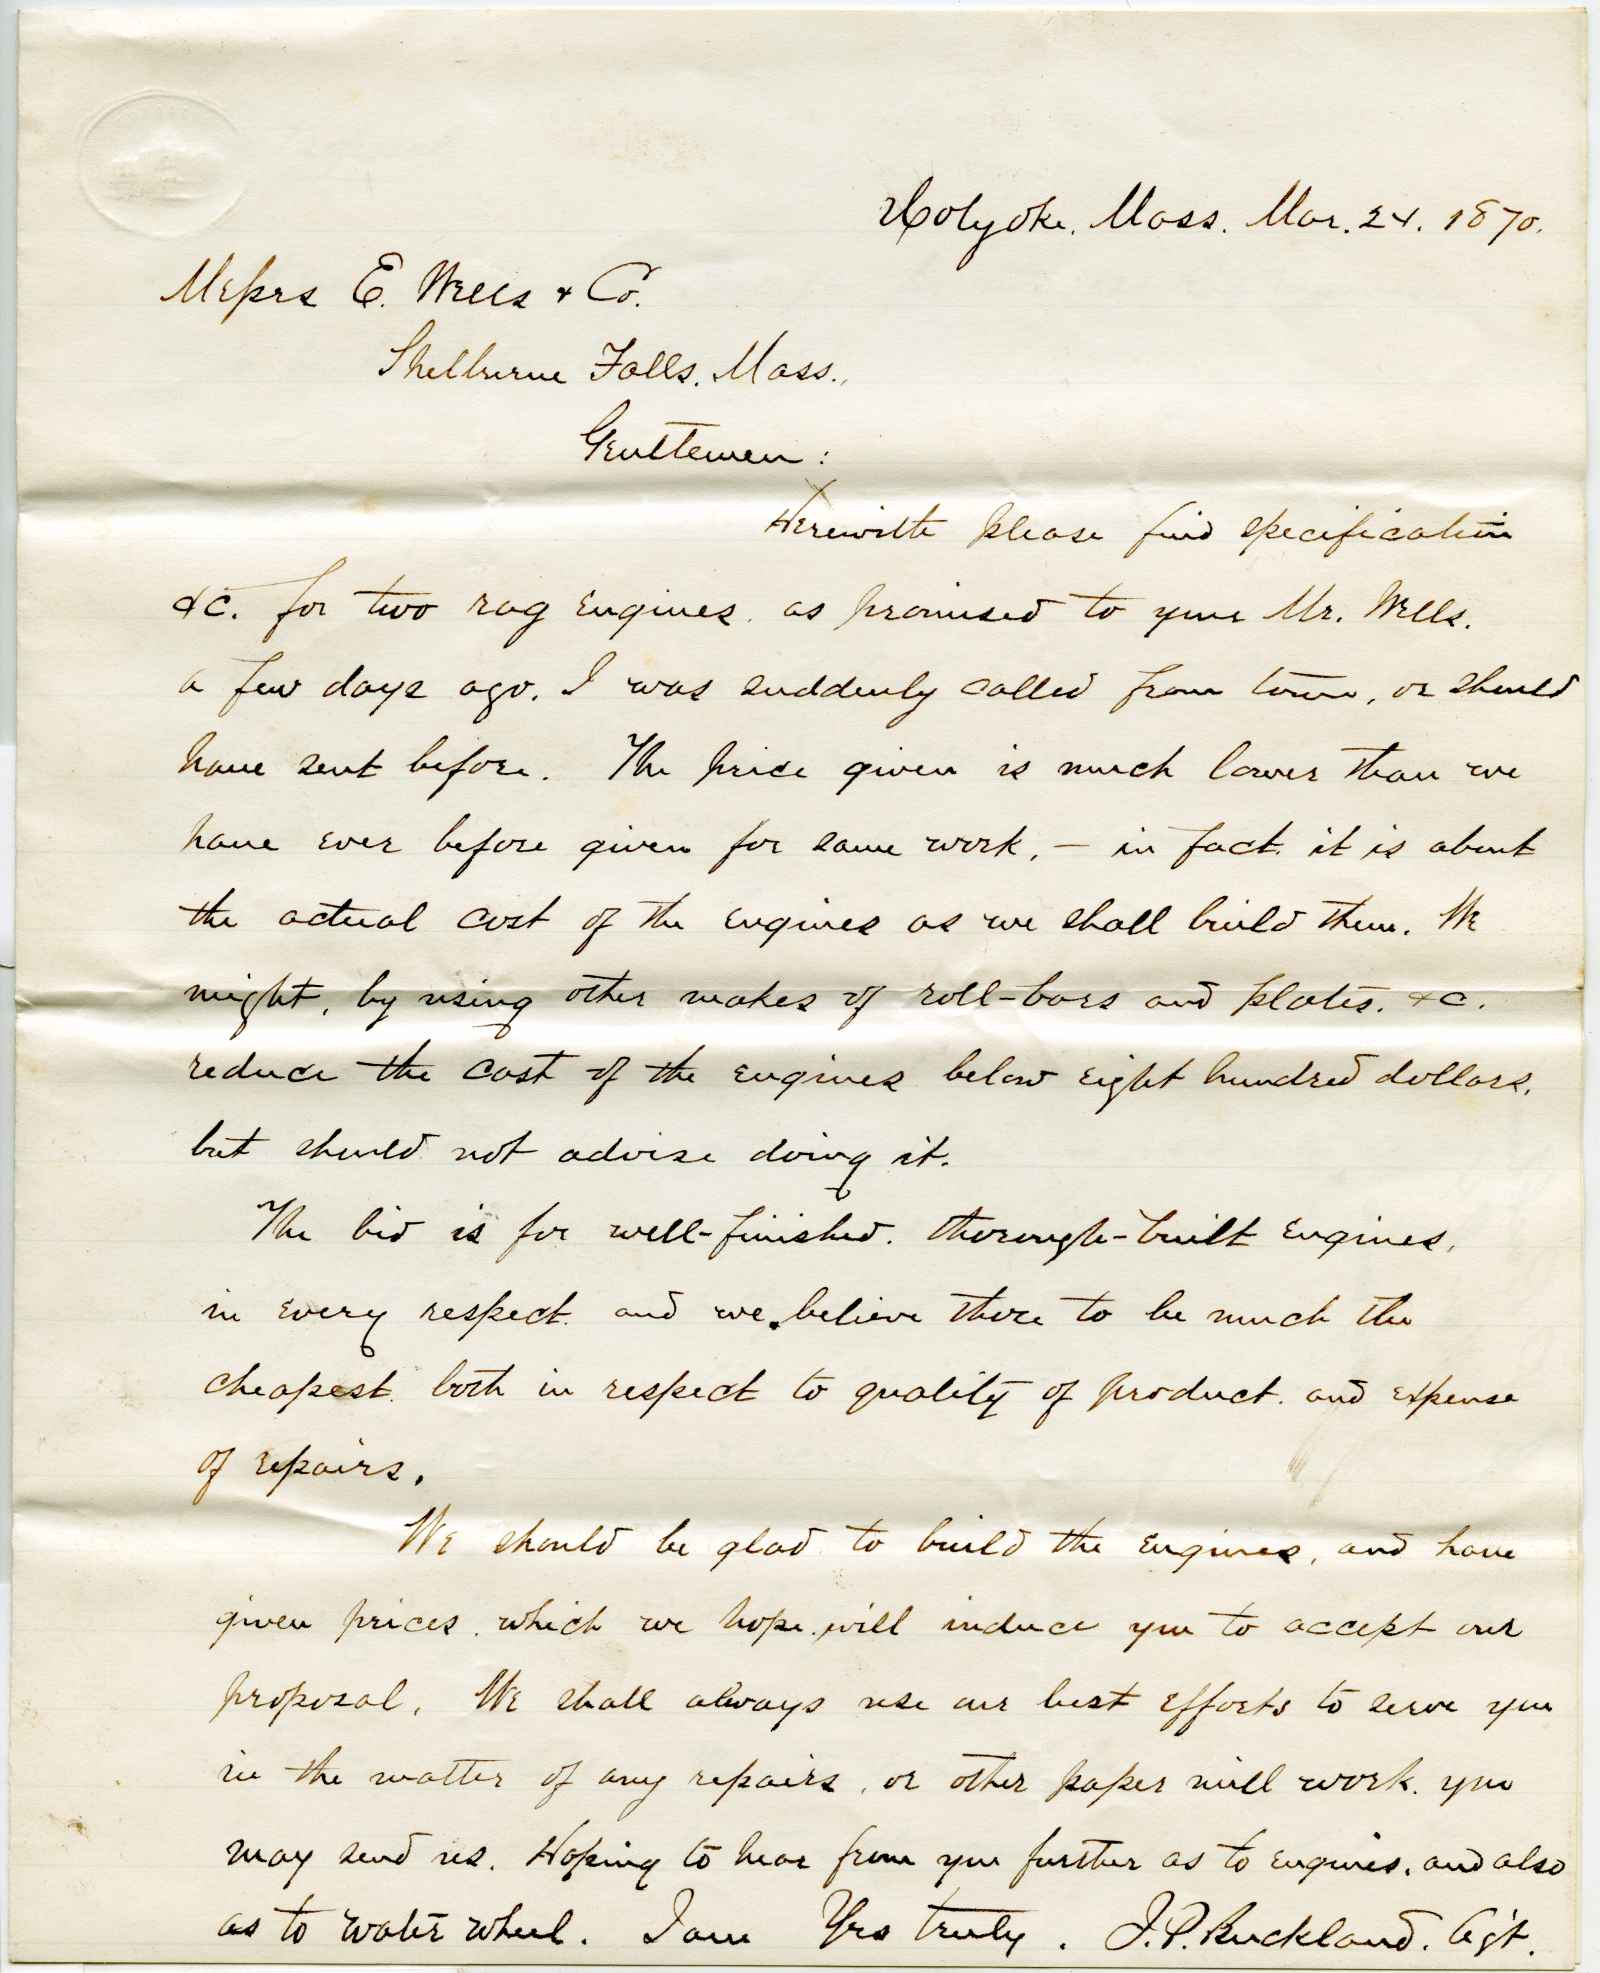 Holyoke, Mass. Mar. 24. 1870.
Messrs E. Wells & Co.
Shelburne Falls, Mass.,
Gentlemen:
Herewith please find specification
&c. for two rag engines, as promised to your Mr. Wells,
a few days ago. I was suddenly called from town, or should
have sent before. The price given is much lower than we
have ever before given for same work, — in fact, it is about
the actual cost of the engines as we shall build them. We
might, by using other makes of roll-bars and plates, &c.
reduce the cost of the engines below eight hundred dollars,
but should not advise doing it.
The bid is for well-finished, thorough-built engines,
in every respect, and we believe those to be much the
cheapest, both in respect to quality of product, and expense
of repairs.
We should be glad to build the engines, and have
given prices, which we hope will induce you to accept our
proposal. We shall always use our best efforts to serve you
in the matter of any repairs, or other paper mill work, you
may send us. Hoping to hear from you further as to engines, and also
as to water wheel. I am Yrs truly. J.P. Buckland. Agt.